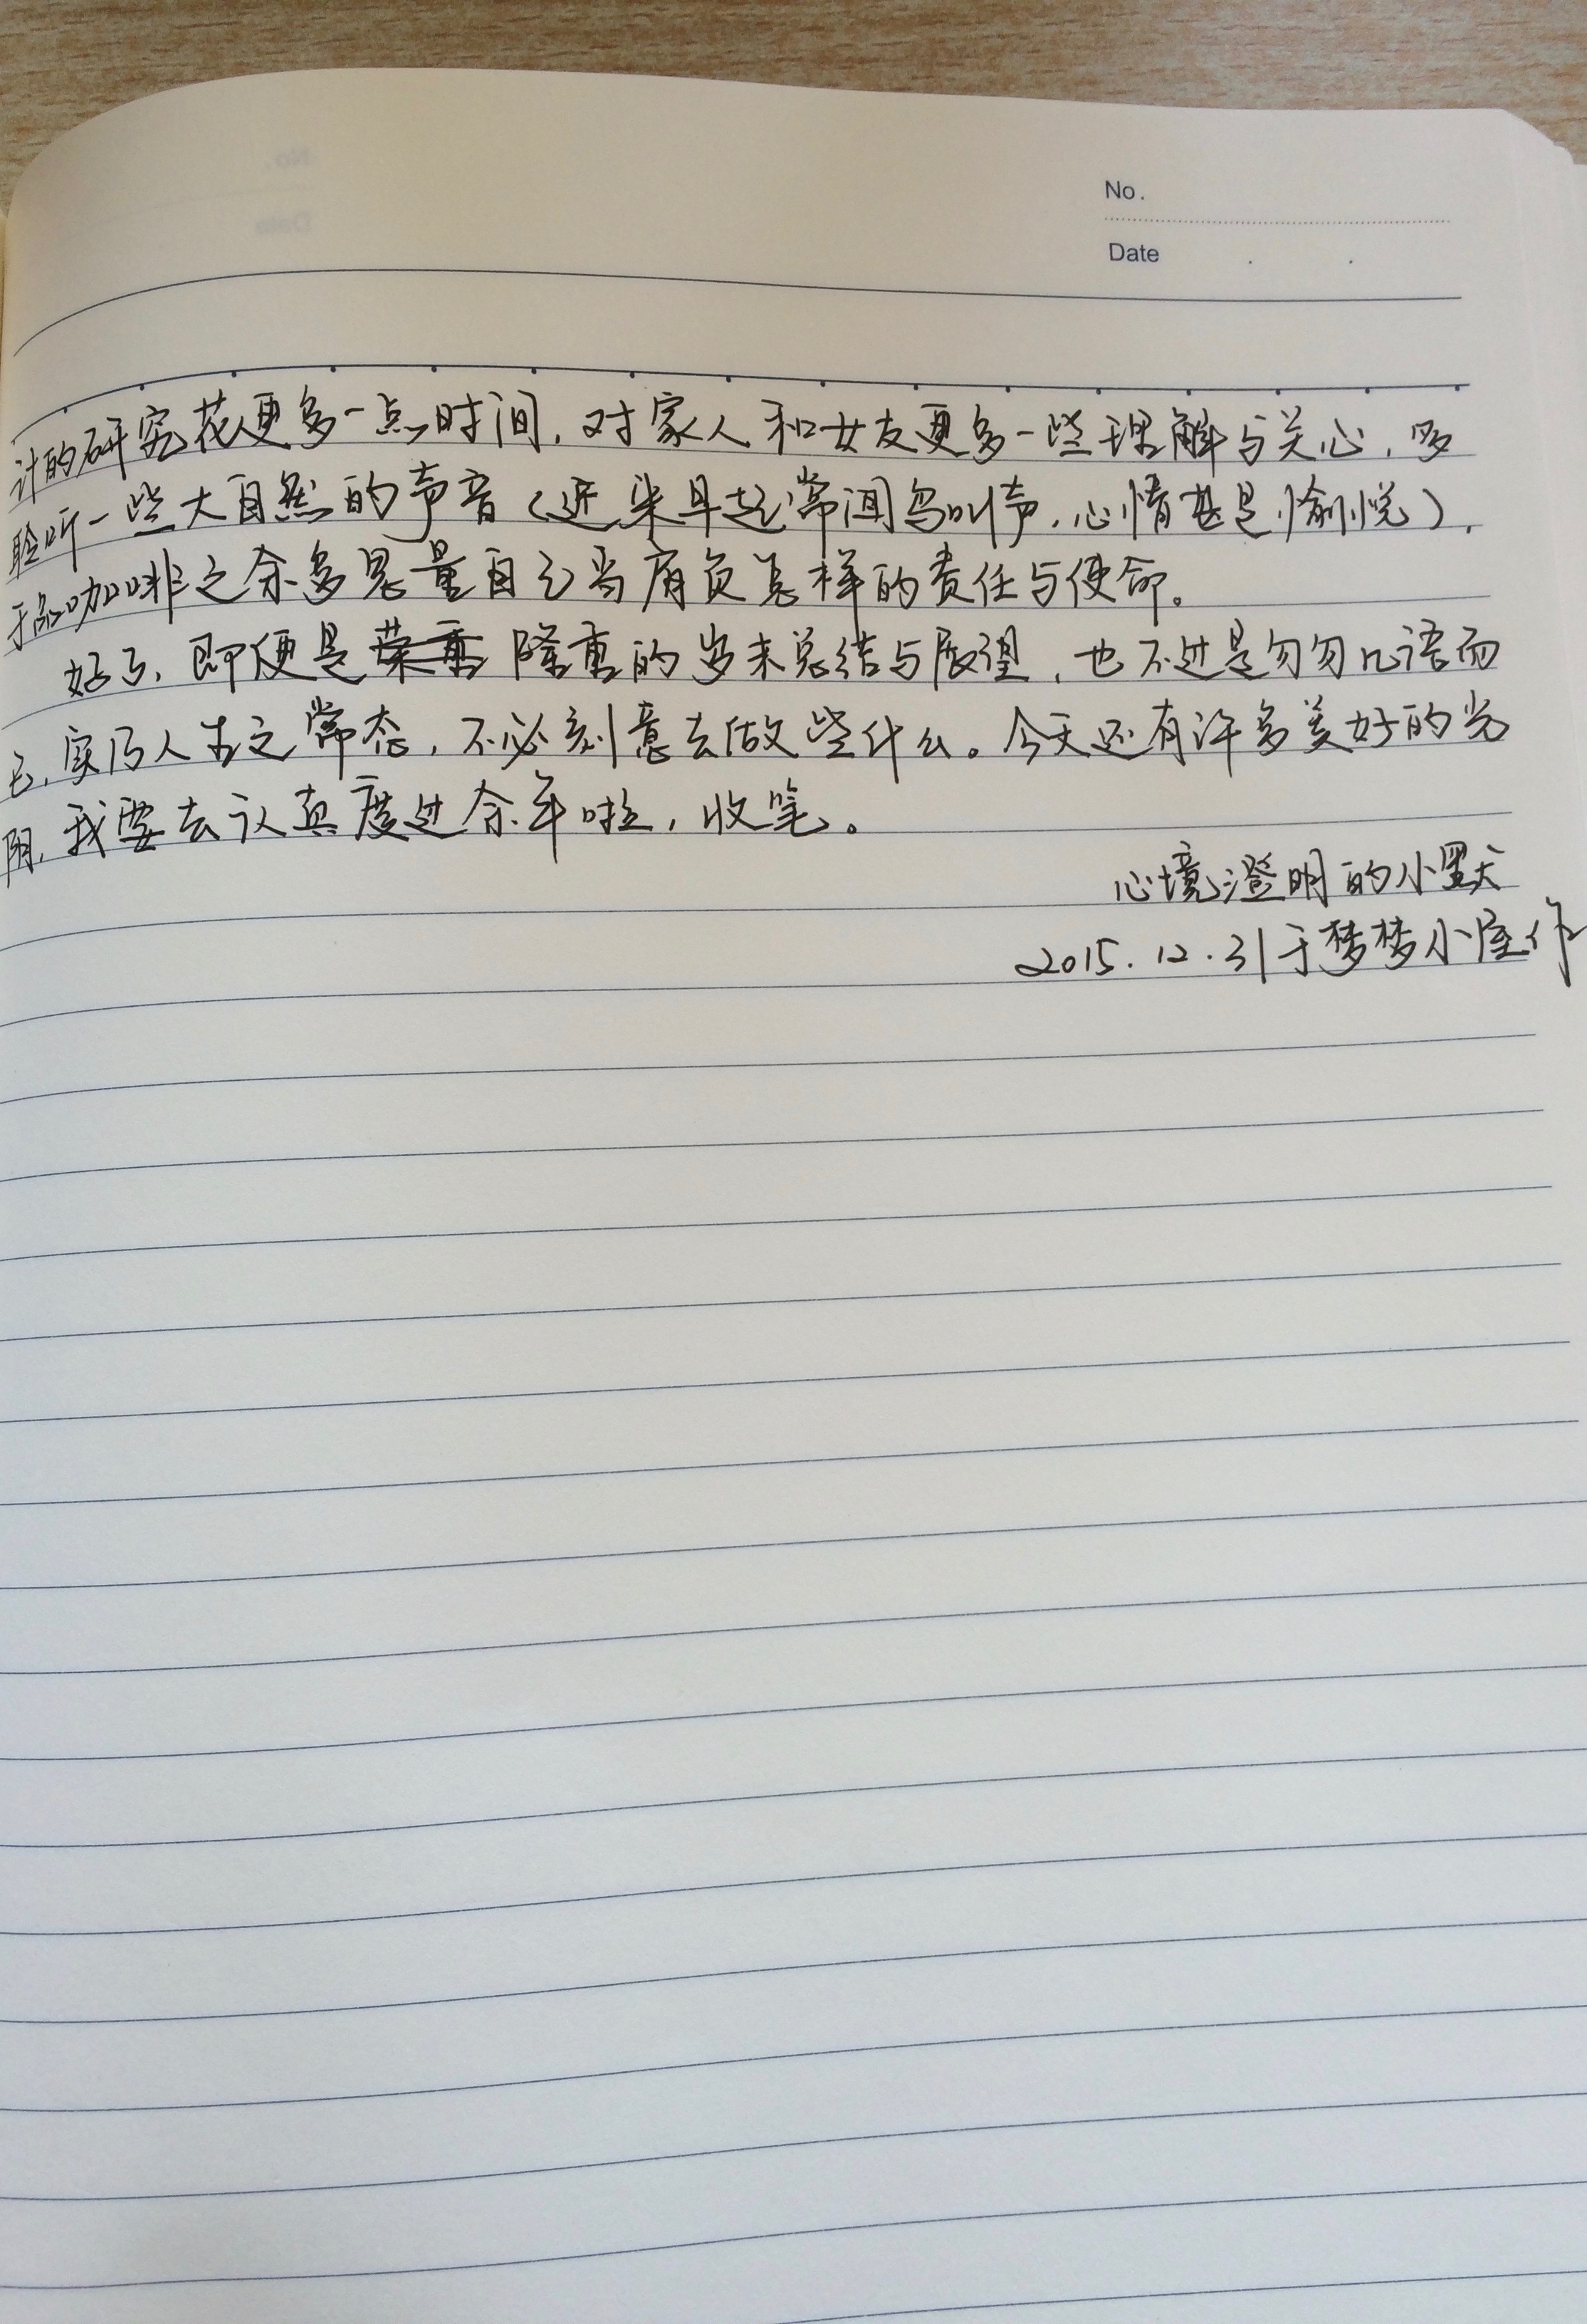 No.
Date . .
计的研究花更多一点时间，对家人和女友更多一些理解与关心，多
聆听一些大自然的声音（近来早起常闻鸟叫声，心情甚是愉悦），
于品咖啡之余多思量自己当肩负怎样的责任与使命。
好了，即便是隆重的岁末总结与展望，也不过是匆匆几语而
已，实乃人生之常态，不必刻意去做些什么。今天还有许多美好的光
阴，我要去认真度过余年啦，收笔。
心境澄明的小默
2015.12.31于梦梦小屋作